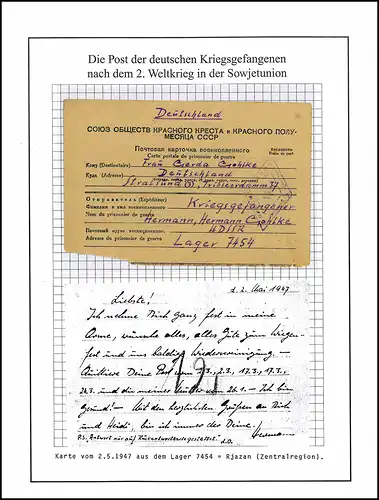 Die Post der deutschen Kriegsgefangenen
nach dem 2. Weltkrieg in der Sowjetunion
Deutschland
СОЮЗ ОБЩЕСТВ КРАСНОГО КРЕСТА и КРАСНОГО ПОЛУ-
МЕСЯЦА СССР
Почтовая карточка военнопленного
Carte postale du prisonnier de guerre
Кому (Destinataire) Frau Gerda
Куда (Adresse) Deutschland
Stralsund (3), Tribseerdamm 37
Отправитель (Expéditeur) Kriegsgefangener
Фамилия и имя военнопленного
Nom du prisonnier de guerre Hermann, Hermann
Почтовый адрес военнопленного UDSSR
Adresse du prisonnier de guerre Lager 7454
d. 2. Mai 1947
Liebste!
Ich nehme Dich ganz fest in meine
Arme, wünsche alles, alles Gute zum Wiegen-
fest und uns baldige Wiedervereinigung. –
Quittiere Deine Post vom 2.3., 17.3., 19.3.,
24.3. und die meiner Mutter vom 26.1. – Ich bin
gesund! – Mit den herzlichsten Grüßen an Dich
und Heidi, bin ich immer der Deine.
P.S. Antwort nur auf Hermann
Karte vom 2.5.1947 aus dem Lager 7454 = Rjazan (Zentralregion).